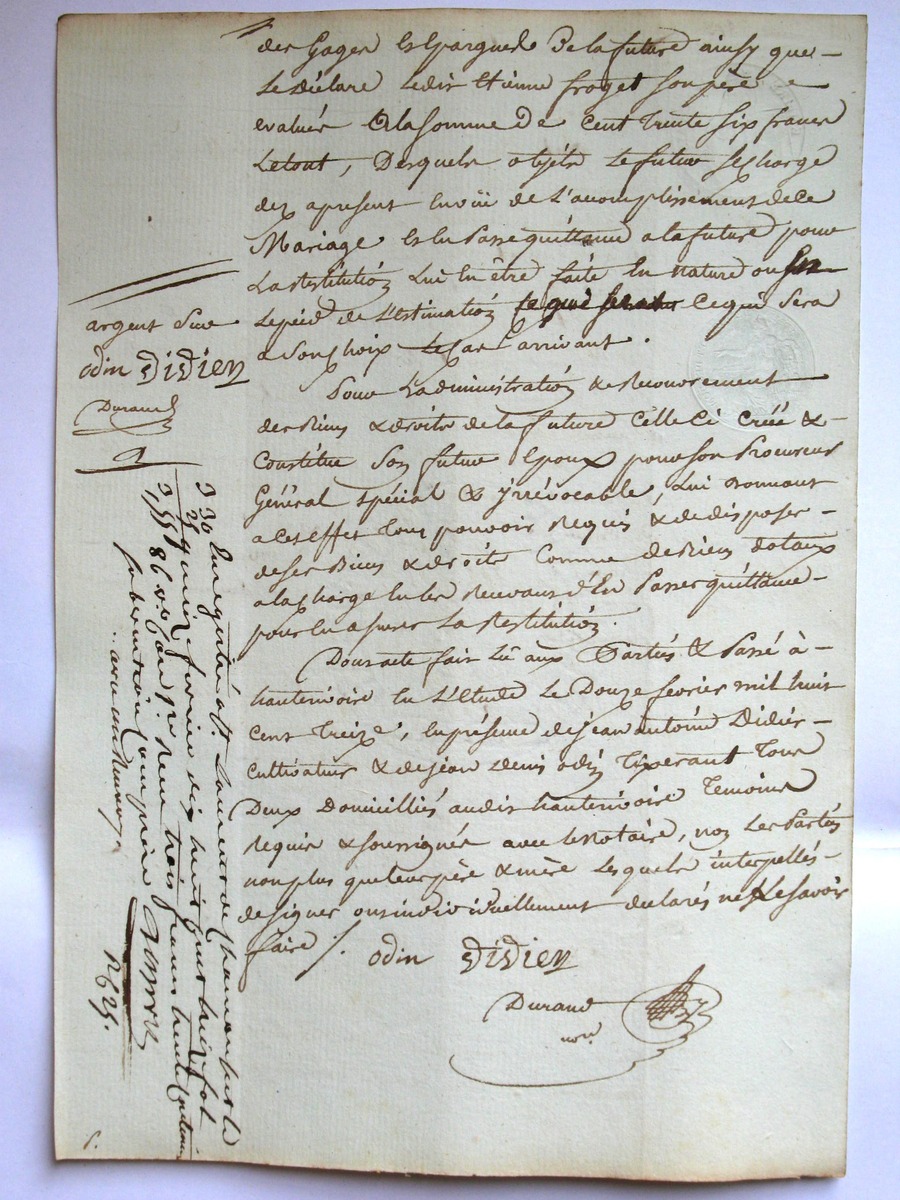 des Gages Et Epargnes De la future ainsy que
Le Déclare Ledit Etienne froget son père
evalués A la somme De Cent Trente Six francs
Le tout, Desquels objéts Le futur se charge
dez apresent En vüe de L'accomplissement de ce
Mariage Et En Passe quittance a la future pour
La restitution Lui En être faite En nature ou
Le pied de L'estimation Ce qui sera
a Son choix Le Cas arrivant.
Pour L'administration & Recouvrement
des Biens & droits de la future Celle Ci créé &
Constitue Son futur Epoux pour son Procureur
Général spécial & yrrévocable, Lui donnant
a Cet Effet tous pouvoir Requis & de disposer
de ses Biens & droits Comme de Biens dotaux
a la charge En les Recevant d'En Passer quittance
pour En assurer La restitution.
Dont acte fait Lû aux Parties & Passé à
hauterivoire En L'Etude Le Douze février mil huit
Cent Treize, En présence de jean antoine Didier
Cultivateur & de jean denis odin Tixerant Tous
Deux Domiciliés audit hauterivoire Temoins
Requis & soussignés avec le Notaire, non Les Parties
non plus que leur père & mère Lesquels interpellés
de signer ont individuellement declarés ne Le savoir
faire ./.
odin DiDieR
Durand
nore
argent sur
odin DiDieR
Durand
3 30 Enregistré à St Laurent de Chamousset le
février dix huit cent treize fol
86 vo Case 1re Reçu trois francs trente Centimes